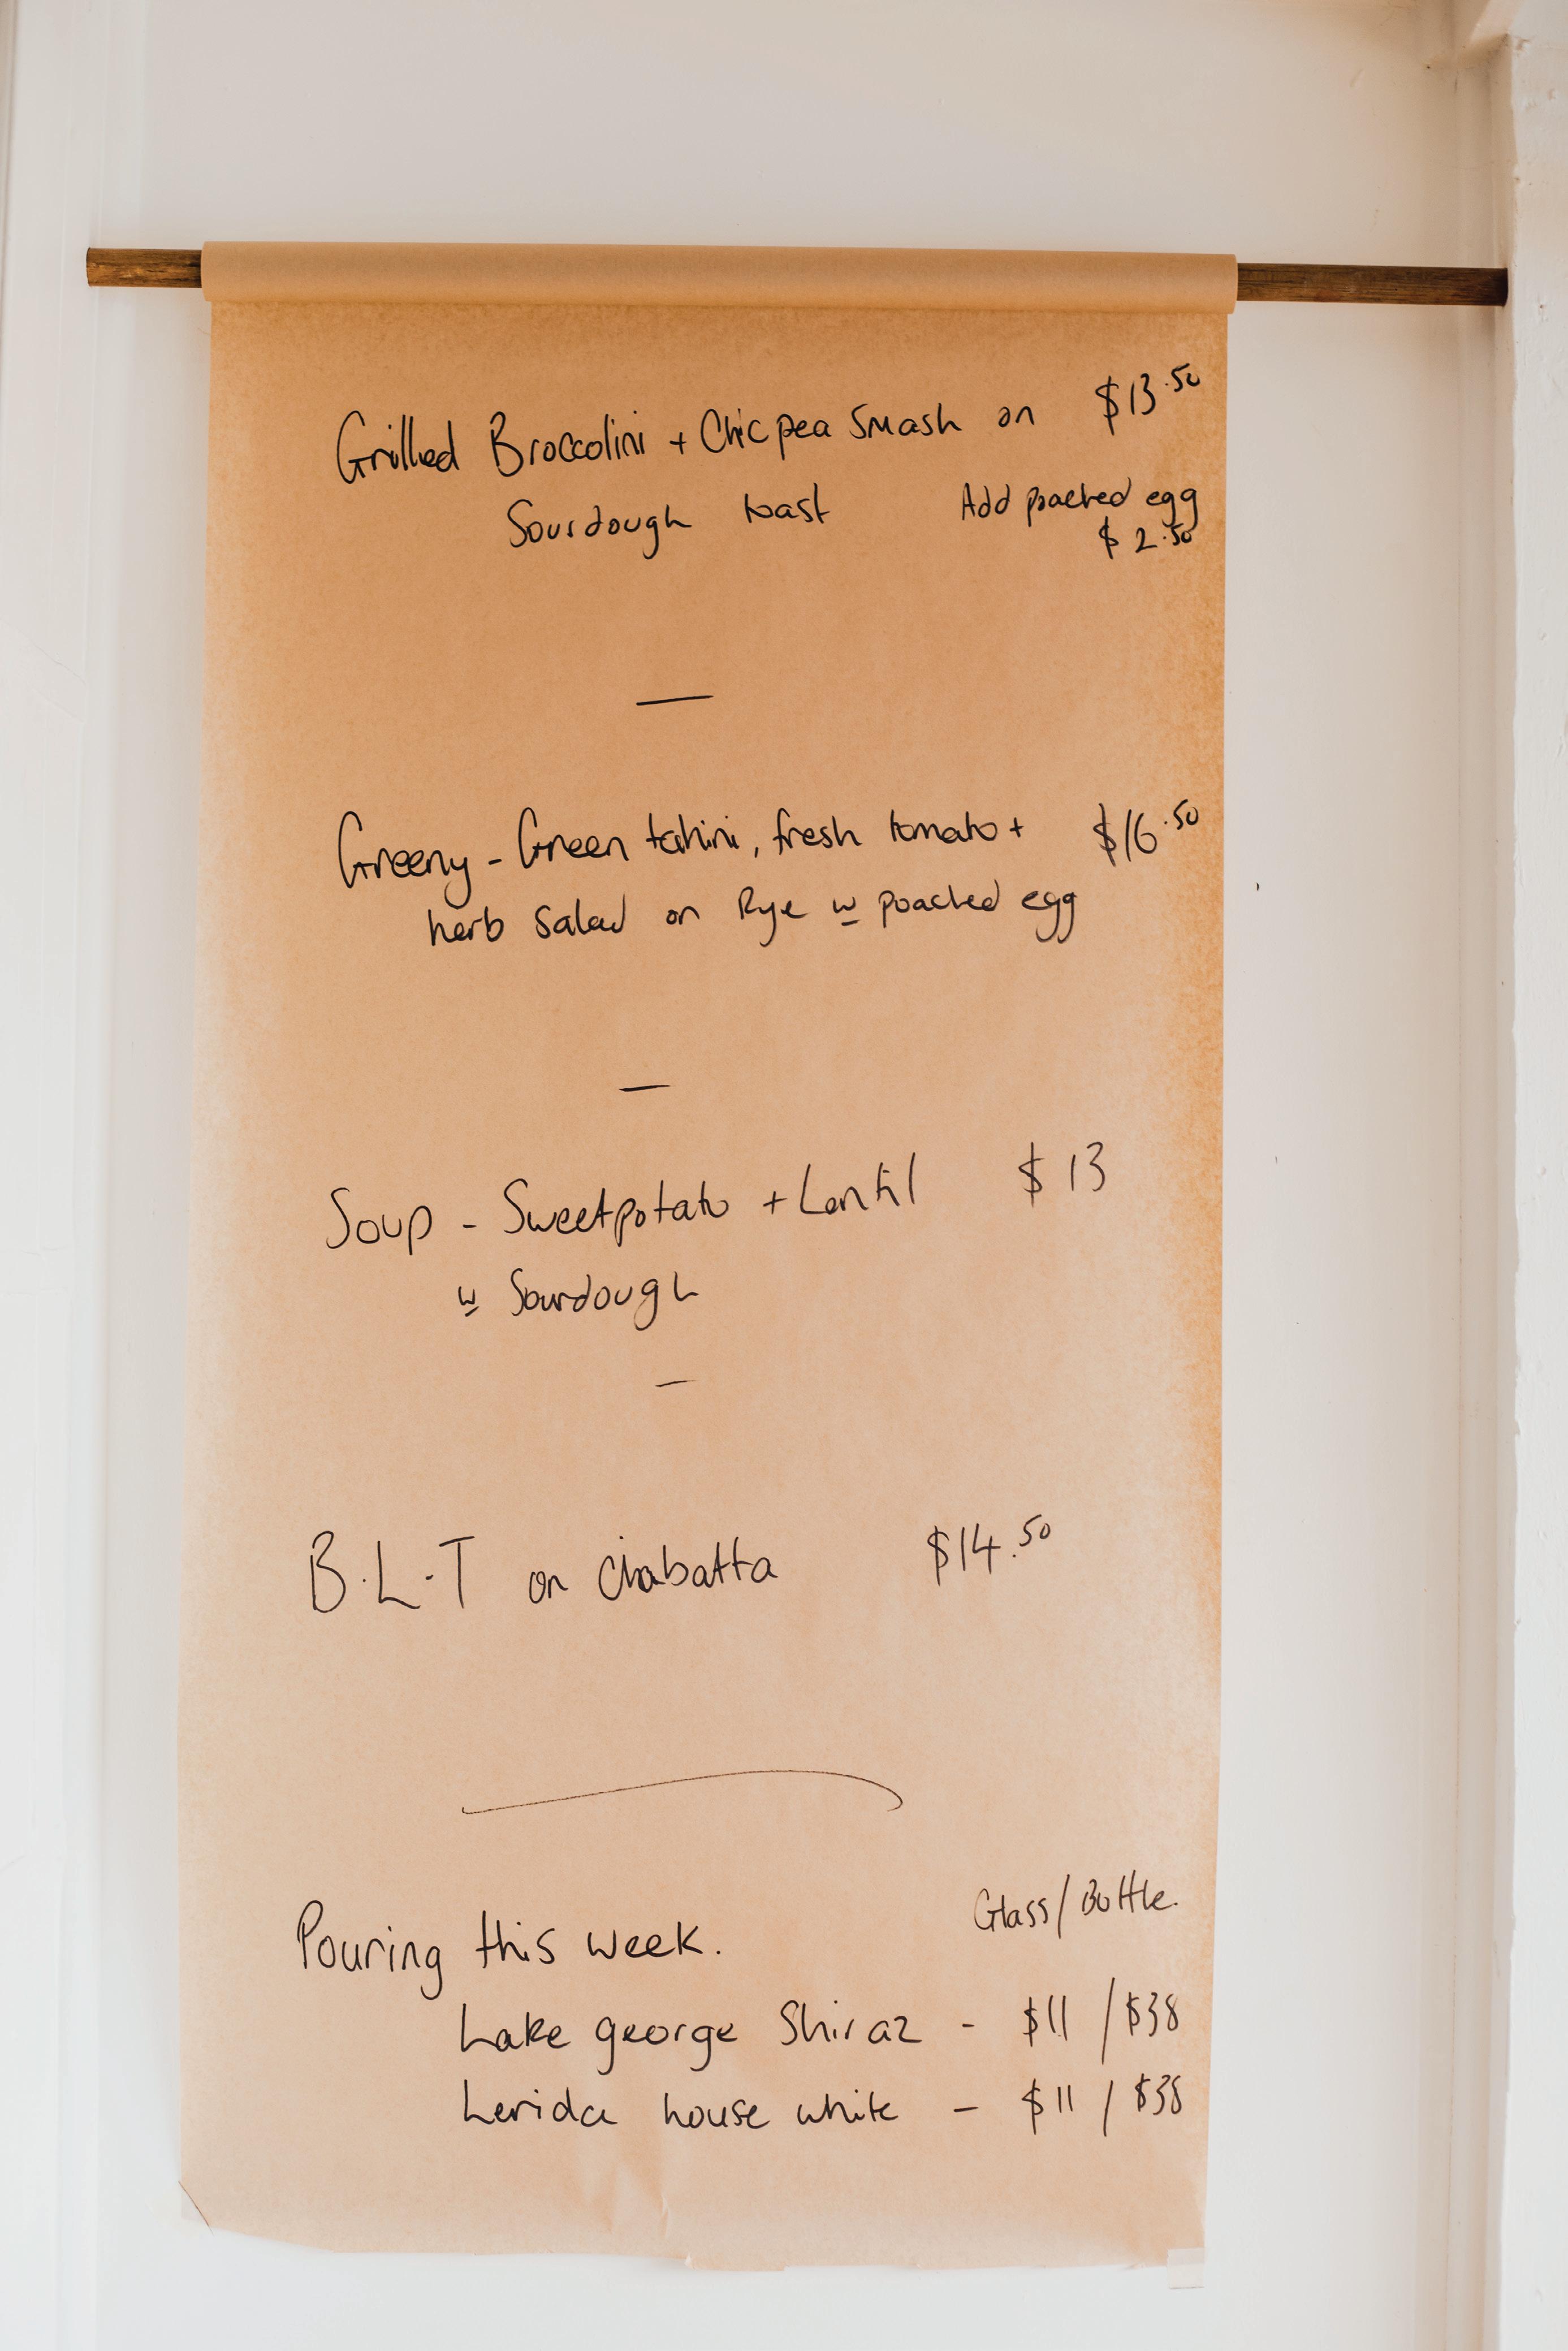 Grilled Broccolini + Chicpea Smash on $13.50
Sourdough toast Add poached egg
$2.50
—
Greeny - Green tahini, fresh tomato + $16.50
herb salad on Rye w poached egg
—
Soup - Sweetpotato + Lentil $13
w Sourdough
—
B.L.T on Ciabatta $14.50
Glass/Bottle.
Pouring this week.
Lake george Shiraz - $11 / $38
Lerida house white - $11 / $38